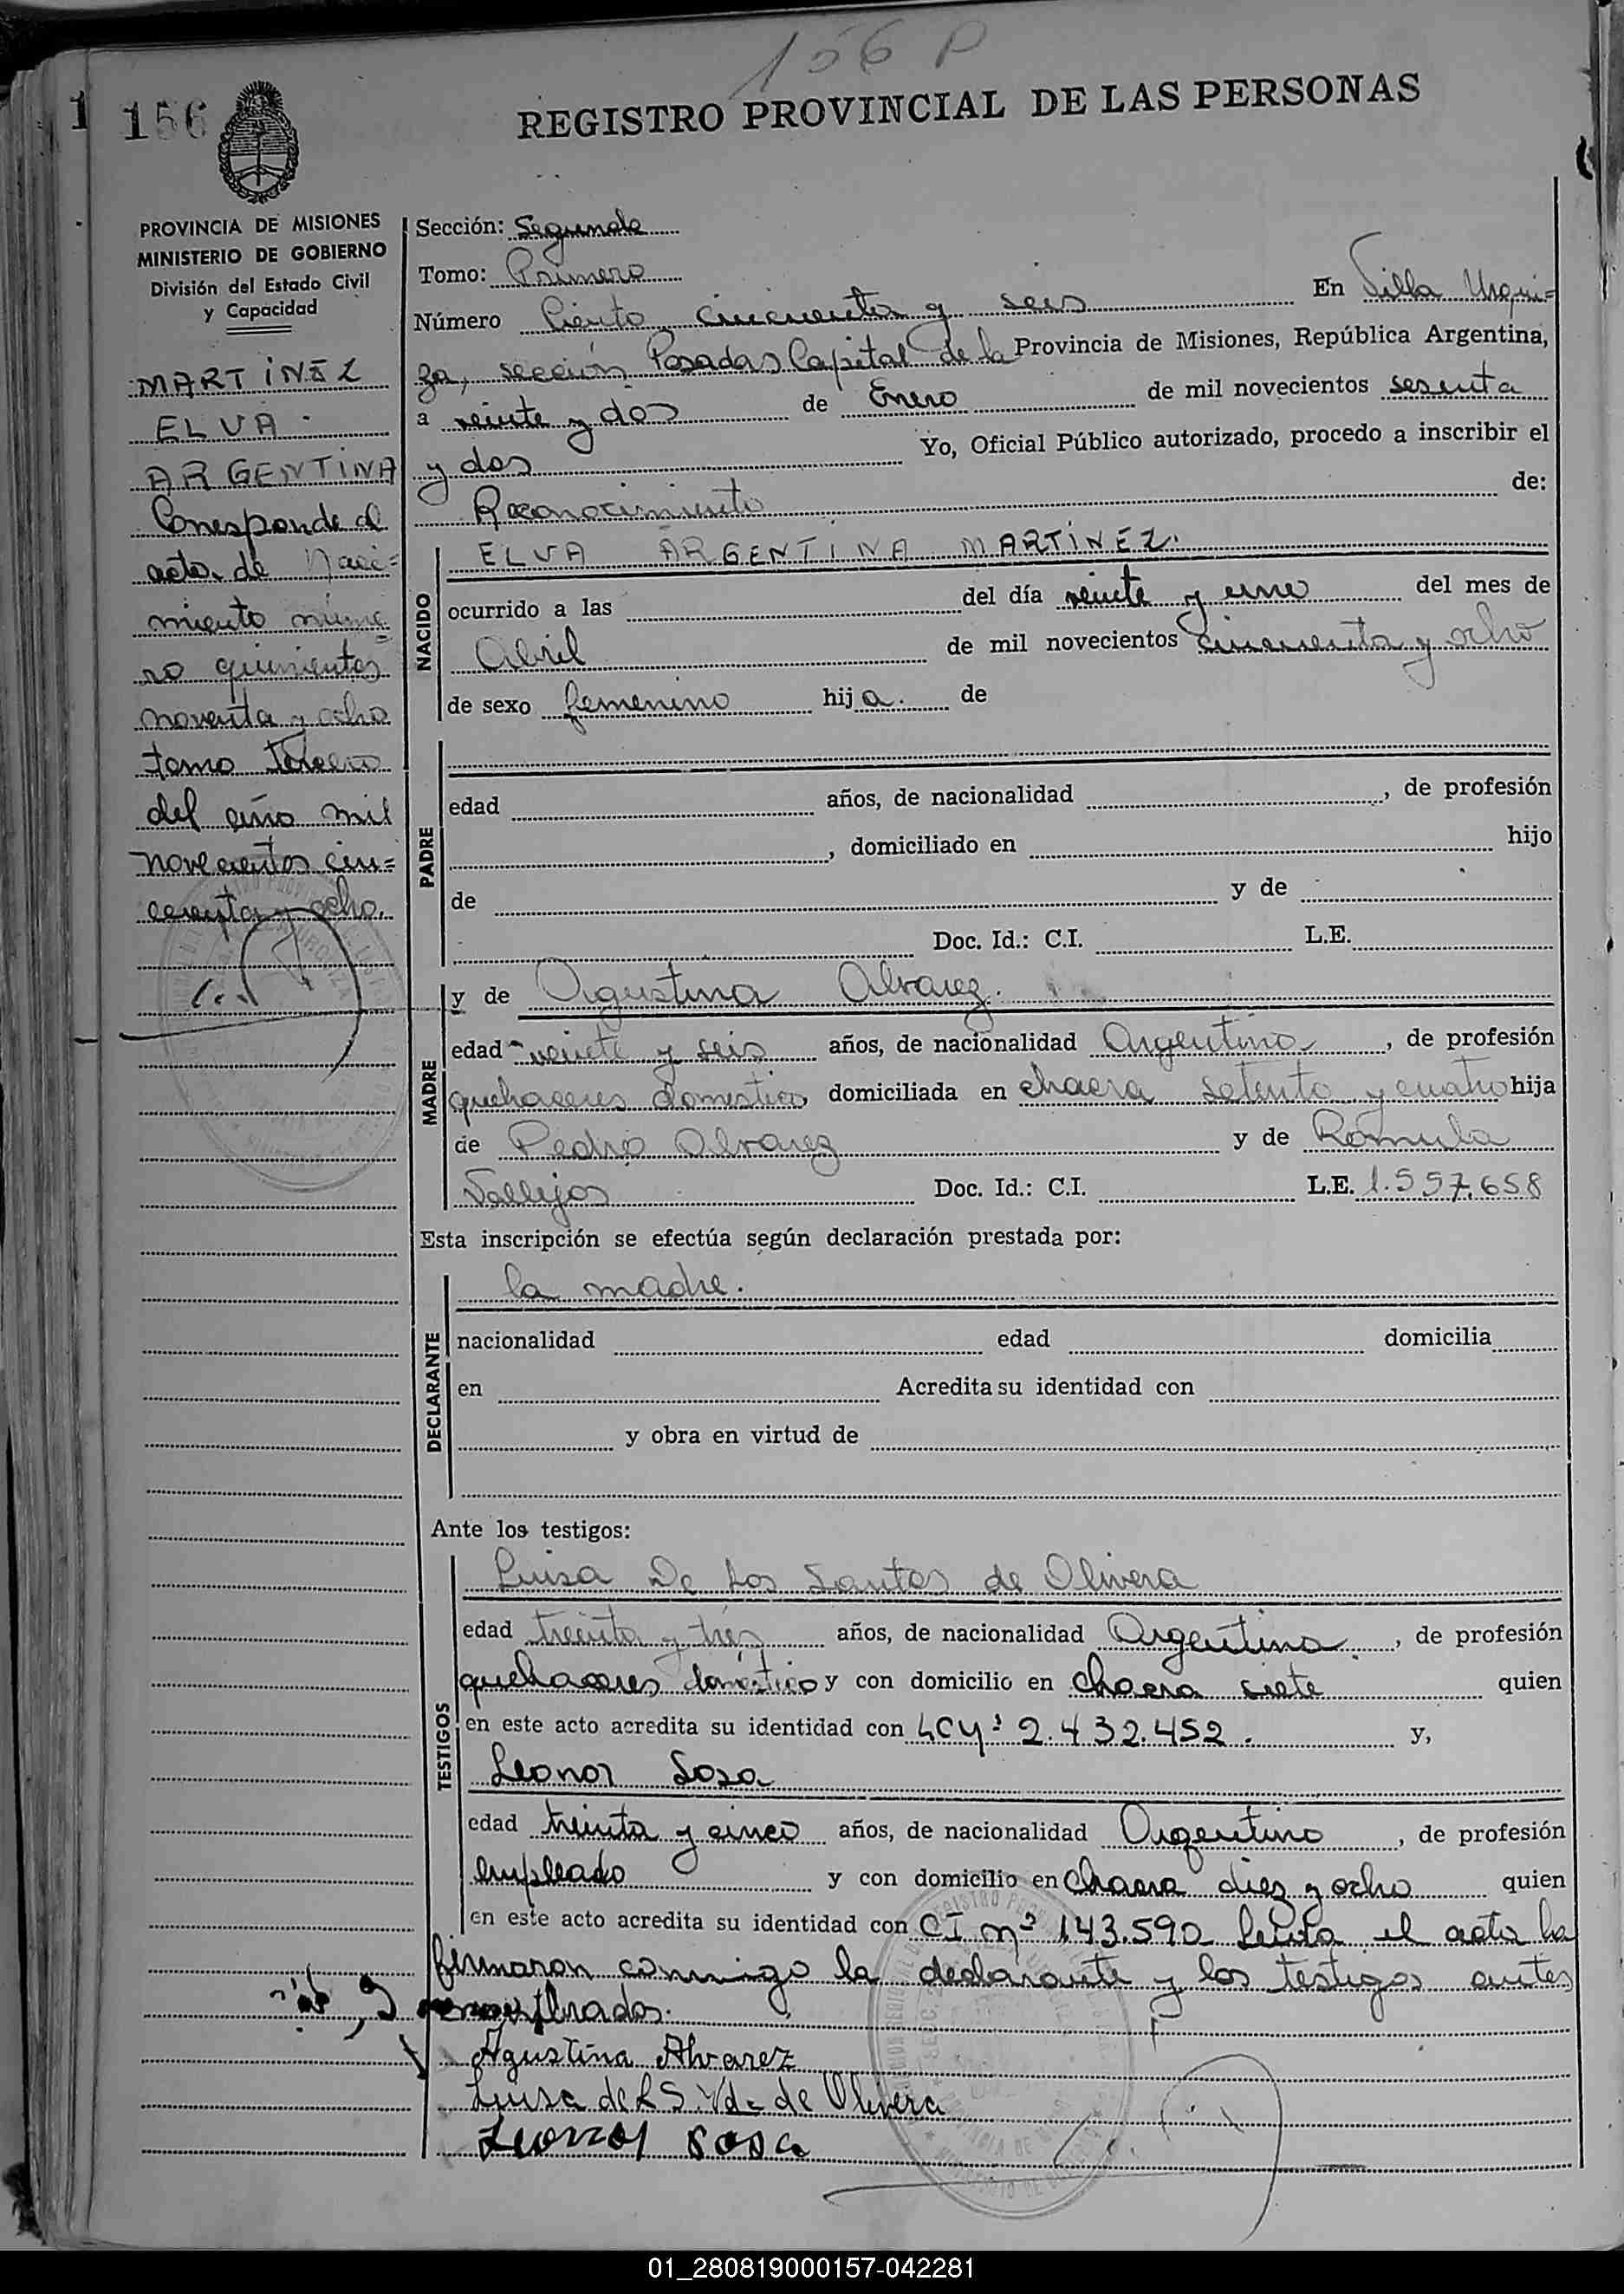 156 P
1 156
REGISTRO PROVINCIAL DE LAS PERSONAS
PROVINCIA DE MISIONES
MINISTERIO DE GOBIERNO
División del Estado Civil
y Capacidad
MARTINEZ
ELVA
ARGENTINA
Corresponde al
acta de Naci=
miento núme
ro quinientos
noventa y ocho
tomo tercero
del año mil
novecientos cin=
cuenta y ocho.
Sección: Segunda
Tomo: Primero
Número Ciento cincuenta y seis En Villa Urqui=
za, sección Posadas Capital de la Provincia de Misiones, República Argentina,
a veinte y dos de Enero de mil novecientos sesenta
y dos Yo, Oficial Público autorizado, procedo a inscribir el
Reconocimiento de:
NACIDO
ELVA ARGENTINA MARTINEZ.
ocurrido a las del día veinte y uno del mes de
Abril de mil novecientos cincuenta y ocho
de sexo femenino hija. de
PADRE
edad años, de nacionalidad , de profesión
, domiciliado en hijo
de y de
Doc. Id.: C.I. L.E.
MADRE
y de Agustina Alvarez.
edad veinte y seis años, de nacionalidad Argentina, de profesión
quehaceres domestico, domiciliada en chacra setenta y cuatro hija
de Pedro Alvarez y de Romula
Vallejos Doc. Id.: C.I. L.E. 1.557.658
Esta inscripción se efectúa según declaración prestada por:
DECLARANTE
la madre.
nacionalidad edad domicilia
en Acredita su identidad con
y obra en virtud de
Ante los testigos:
TESTIGOS
Luisa De Los Santos de Olivera
edad treinta y tres años, de nacionalidad Argentina, de profesión
quehaceres domestico y con domicilio en chacra siete quien
en este acto acredita su identidad con 2.432.452. y,
Leonor Sosa
edad treinta y cinco años, de nacionalidad Argentino, de profesión
empleado y con domicilio en chacra diez y ocho quien
en este acto acredita su identidad con CI nº 143.590 Leida el acta la
firmaron conmigo la declarante y los testigos antes
Agustina Alvarez
Luisa de L S Vd. de Olivera
Leonor Sosa
01_280819000157-042281